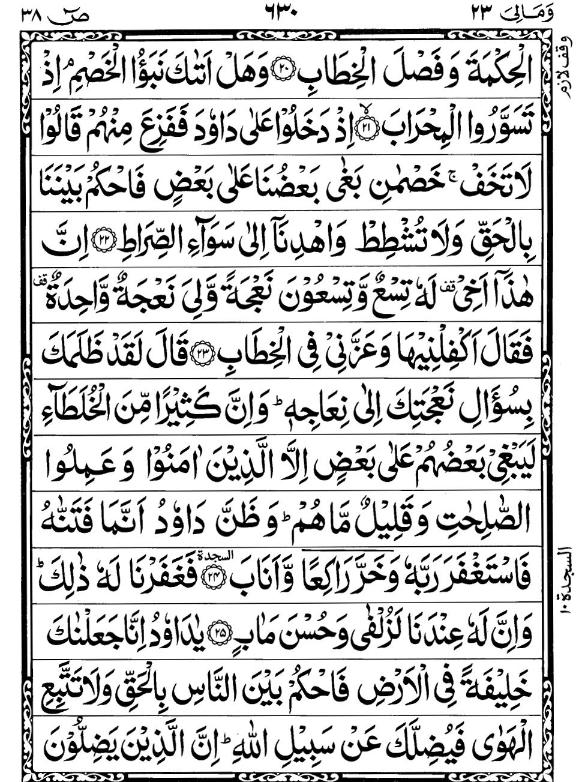 وَمَالِیَ ٢٣ ٦٣٠ صٓ ٣٨
الْحِكْمَةَ وَفَصْلَ الْخِطَابِ ﴿٢٠﴾ وَهَلْ اَتٰىكَ نَبَؤُا الْخَصْمِ ۘ اِذْ
تَسَوَّرُوا الْمِحْرَابَ ﴿٢١﴾ۙ اِذْ دَخَلُوْا عَلٰى دَاوٗدَ فَفَزِعَ مِنْهُمْ قَالُوْا
لَا تَخَفْ ۚ خَصْمٰنِ بَغٰى بَعْضُنَا عَلٰى بَعْضٍ فَاحْكُمْ بَيْنَنَا
بِالْحَقِّ وَلَا تُشْطِطْ وَاهْدِنَاۤ اِلٰى سَوَآءِ الصِّرَاطِ ﴿٢٢﴾ اِنَّ
هٰذَاۤ اَخِیْ ۫ لَهٗ تِسْعٌ وَّتِسْعُوْنَ نَعْجَةً وَّلِیَ نَعْجَةٌ وَّاحِدَةٌ ۫
فَقَالَ اَكْفِلْنِيْهَا وَعَزَّنِیْ فِی الْخِطَابِ ﴿٢٣﴾ قَالَ لَقَدْ ظَلَمَكَ
بِسُؤَالِ نَعْجَتِكَ اِلٰى نِعَاجِهٖ ؕ وَاِنَّ كَثِيْرًا مِّنَ الْخُلَطَآءِ
لَيَبْغِیْ بَعْضُهُمْ عَلٰى بَعْضٍ اِلَّا الَّذِيْنَ اٰمَنُوْا وَعَمِلُوا
الصّٰلِحٰتِ وَقَلِيْلٌ مَّا هُمْ ؕ وَظَنَّ دَاوٗدُ اَنَّمَا فَتَنّٰهُ
فَاسْتَغْفَرَ رَبَّهٗ وَخَرَّ رَاكِعًا وَّاَنَابَ ﴿٢٤﴾ السجدة فَغَفَرْنَا لَهٗ ذٰلِكَ ؕ
وَاِنَّ لَهٗ عِنْدَنَا لَزُلْفٰى وَحُسْنَ مَاٰبٍ ﴿٢٥﴾ يٰدَاوٗدُ اِنَّا جَعَلْنٰكَ
خَلِيْفَةً فِی الْاَرْضِ فَاحْكُمْ بَيْنَ النَّاسِ بِالْحَقِّ وَلَا تَتَّبِعِ
الْهَوٰى فَيُضِلَّكَ عَنْ سَبِيْلِ اللّٰهِ ؕ اِنَّ الَّذِيْنَ يَضِلُّوْنَ
وقف لازم
السجدة ١٠